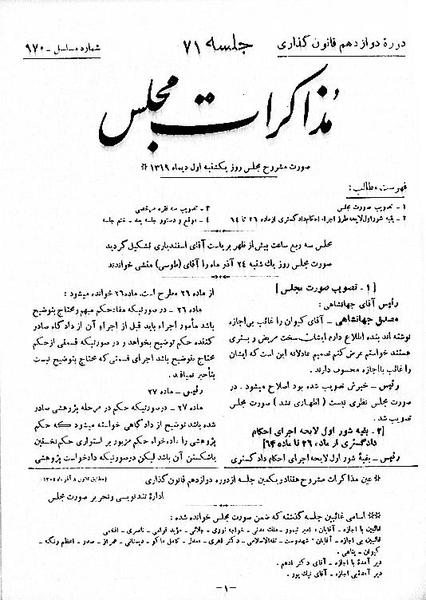 دورهٔ دوازدهم قانون گذاری
جلسه ۷۱
شماره مسلسل - ۹۷۰
مذاکرات مجلس
صورت مشروح مجلس روز یکشنبه اول دیماه ۱۳۱۹ *
فهرست مطالب:
۱ - تصویب صورت مجلس
۲ - بقیه شور اول لایحه طرز اجراء احکام دادگستری از ماده ۲۶ تا ۶۴
۳ - تصویب سه فقره مرخصی
۴ - موقع و دستور جلسه بعد - ختم جلسه
مجلس سه ربع ساعت پیش از ظهر بریاست آقای اسفندیاری تشکیل گردید
صورت مجلس روز یك شنبه ۲۴ آذر ماه را آقای (طوسی) منشی خواندند
[۱ - تصویب صورت مجلس]
رئیس - آقای جهانشاهی:
مصدق جهانشاهی - آقای کیوان را غائب بی‌اجازه
نوشته اند بنده اطلاع دارم ایشان سخت مریض و بستری
هستند خواستم عرض کنم تصمیم عادلانه این است که ایشان
را غائب بااجازه محسوب دارند.
رئیس - خبرش تصویب شده بود اصلاح میشود. در
صورت مجلس نظری نیست (اظهاری نشد) صورت مجلس
تصویب شد.
[۲ - بقیه شور اول لایحه اجرای احکام
دادگستری از ماده ۲۶ تا ماده ۶۴]
رئیس - بقیهٔ شور اول لایحه اجرای احکام دادگستری
از ماده ۲۶ مطرح است. ماده ۲۶ خوانده میشود:
ماده ۲۶ - در صورتیکه مفاد حکم مبهم و محتاج بتوضیح
باشد مأمور اجراء باید قبل از اجراء آن از دادگاه صادر
کننده حکم توضیح بخواهد و در صورتیکه قسمتی از حکم
محتاج بتوضیح باشد اجرای قسمتی که محتاج بتوضیح نیست
بتأخیر نمیافتد.
رئیس - ماده ۲۷
ماده ۲۷ - درصورتیکه حکم در مرحله پژوهشی صادر
شده باشد توضیح از دادگاهی خواسته میشود که حکم
پژوهشی را داده خواه حکم مزبور بر استواری حکم نخستین
یا شکستن آن باشد لیکن درصورتیکه دادخواست پژوهشی
* عین مذاکرات مشروح هفتاد و یکمین جلسه از دوره دوازدهم قانون گذاری
(مطابق قانون ۸ آذرماه ۱۳۰۵)
اداره تندنویسی و تحریر صورت مجلس
* اسامی غائبین جلسه گذشته که ضمن صورت مجلس خوانده شده:
غائبین با اجازه - آقایان:
غائبین بی اجازه - آقایان:
کیوان - پناهی.
دیر آمدهٔ با اجازه - آقای دکتر ادهم.
دیر آمدهٔ بی اجازه - آقای نیک پور.
-۱-